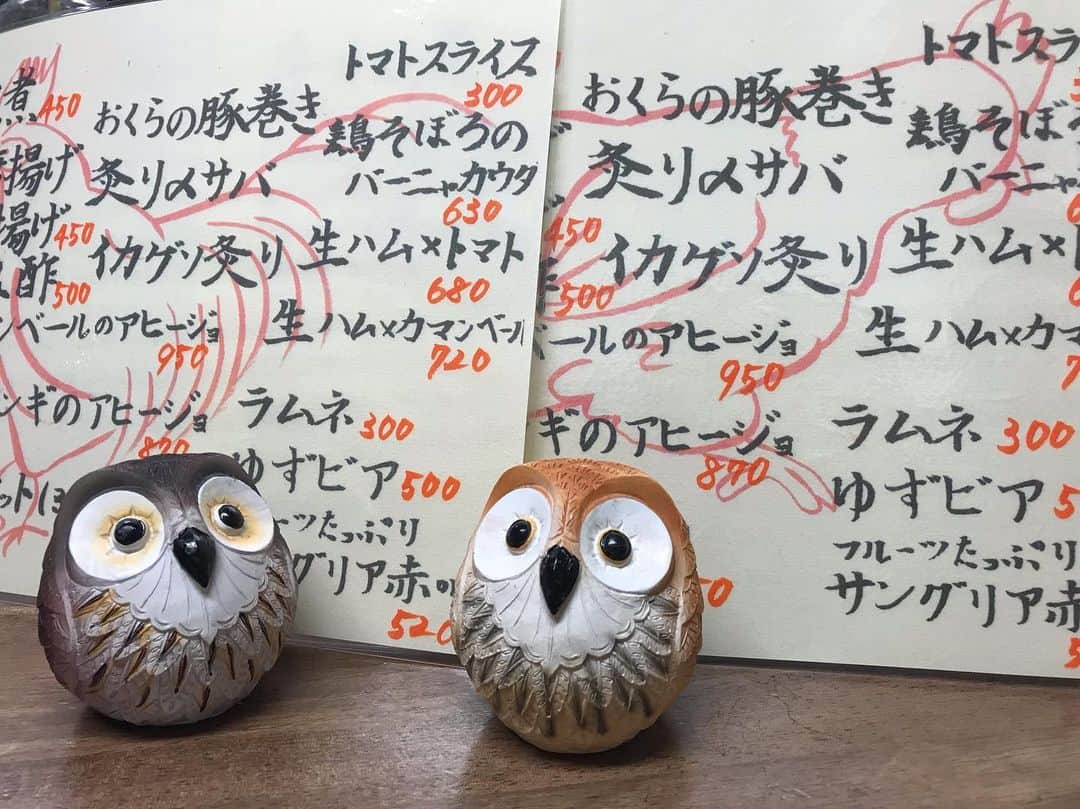 トマトスライス
300
煮
450
おくらの豚巻き
鶏そぼろの
バーニャカウダ
630
揚げ
炙り〆サバ
揚げ
450
イカゲソ炙り
生ハム×トマト
680
酢
500
ンベールのアヒージョ
950
生ハム×カマンベール
720
ンギのアヒージョ
870
ラムネ
300
ゆずビア
500
ルーツたっぷり
ングリア赤
520
トマトスラ
おくらの豚巻き
鶏そぼろ
バーニャ
炙り〆サバ
450
イカゲソ炙り
生ハム×
500
ベールのアヒージョ
950
生ハム×カマ
ギのアヒージョ
870
ラムネ
300
ゆずビア
フルーツたっぷり
サングリア赤